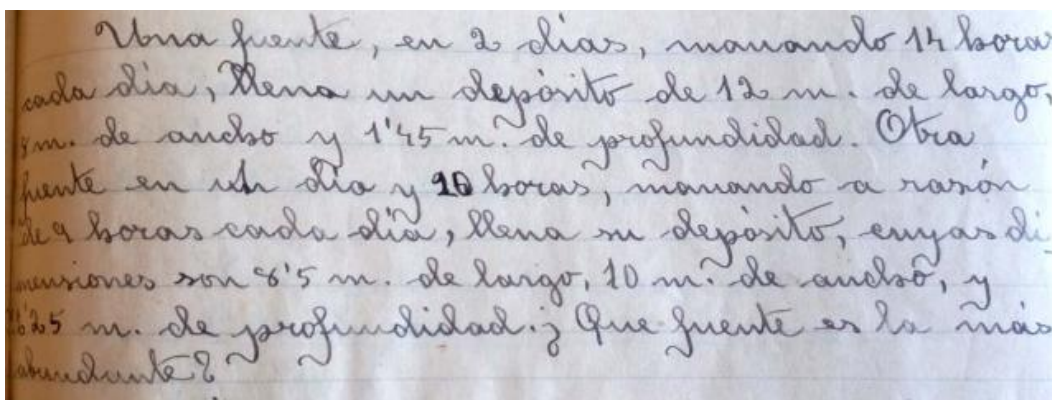 Una fuente, en 2 dias, manando 14 horas
cada dia, llena un depósito de 12 m. de largo,
8 m. de ancho y 1'45 m. de profundidad. Otra
fuente en un dia y 10 horas, manando a razón
de 9 horas cada dia, llena su depósito, cuyas di
mensiones son 8'5 m. de largo, 10 m. de ancho, y
m. de profundidad. ¿Que fuente es la más
abundante?